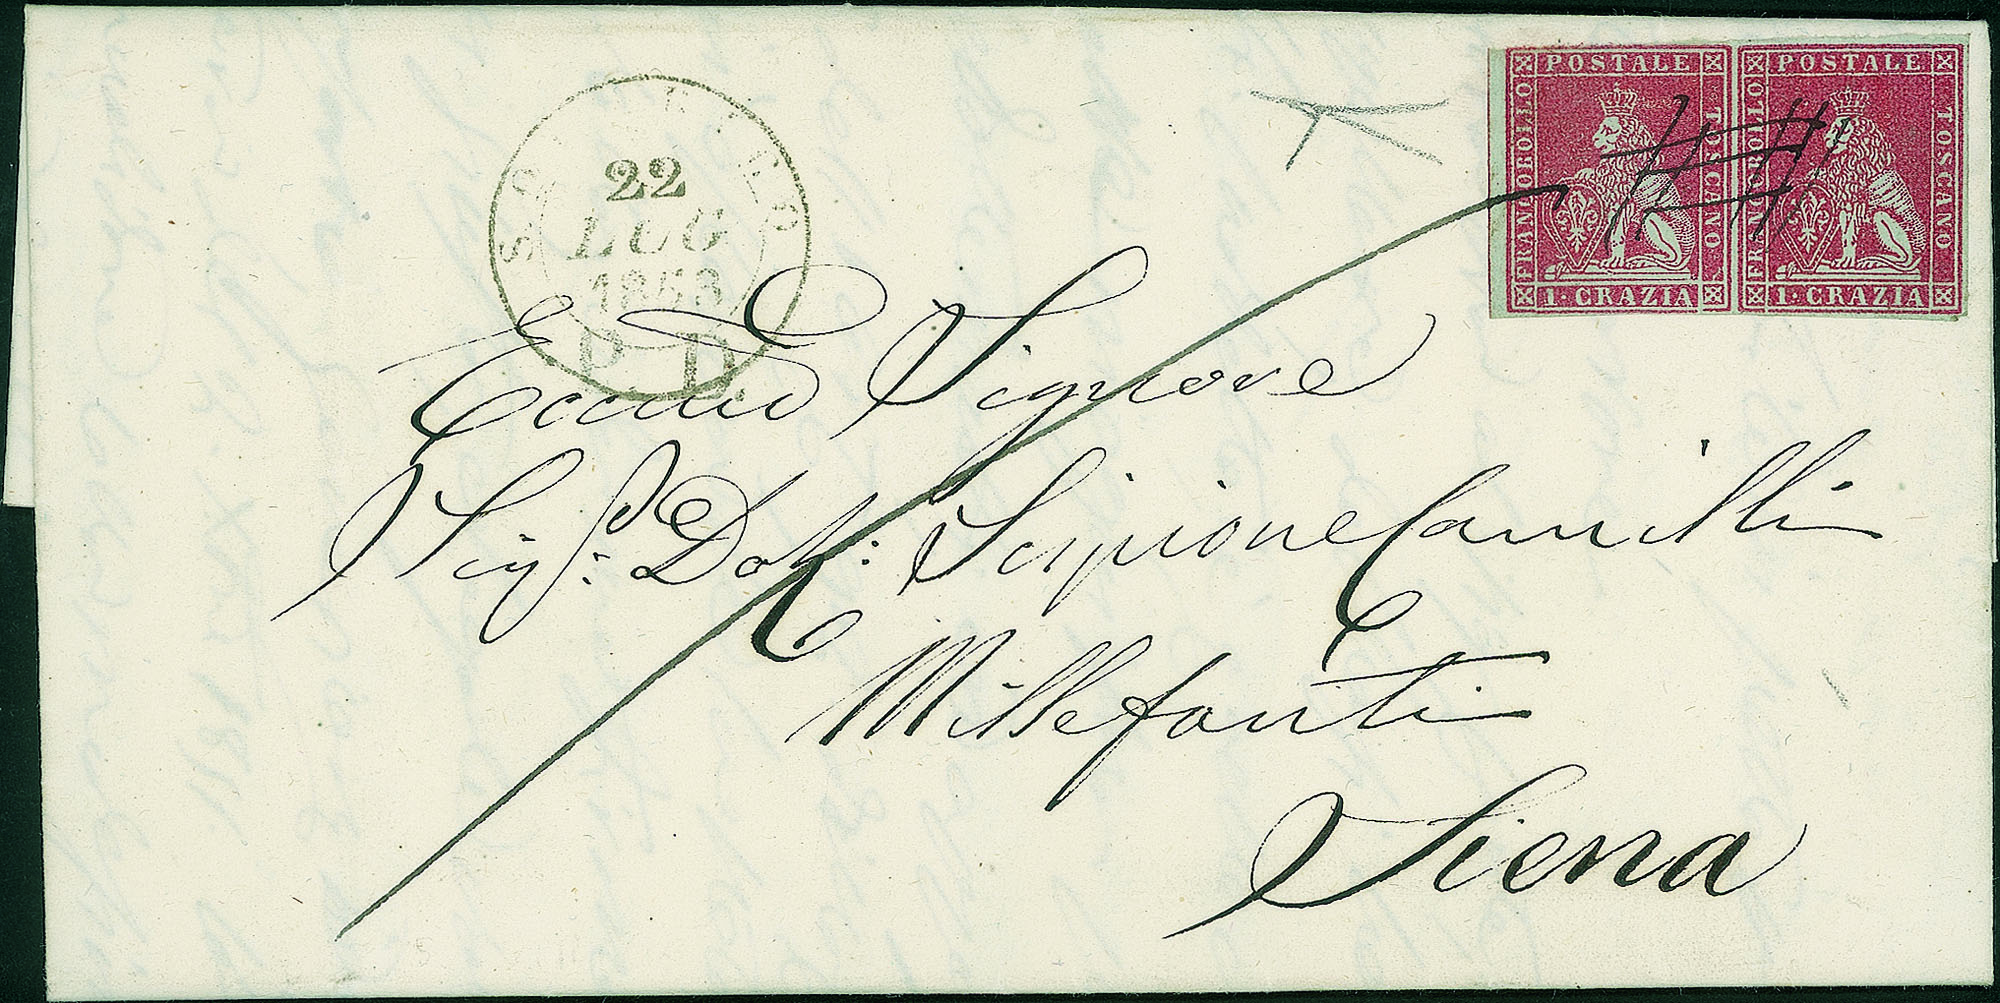 22
LUG
1853
P. D.
FRANCOBOLLO POSTALE TOSCANO
1. CRAZIA
FRANCOBOLLO POSTALE TOSCANO
1. CRAZIA
Signore
Sigr. Dott: Scipione Camilli
Millefonti
Siena